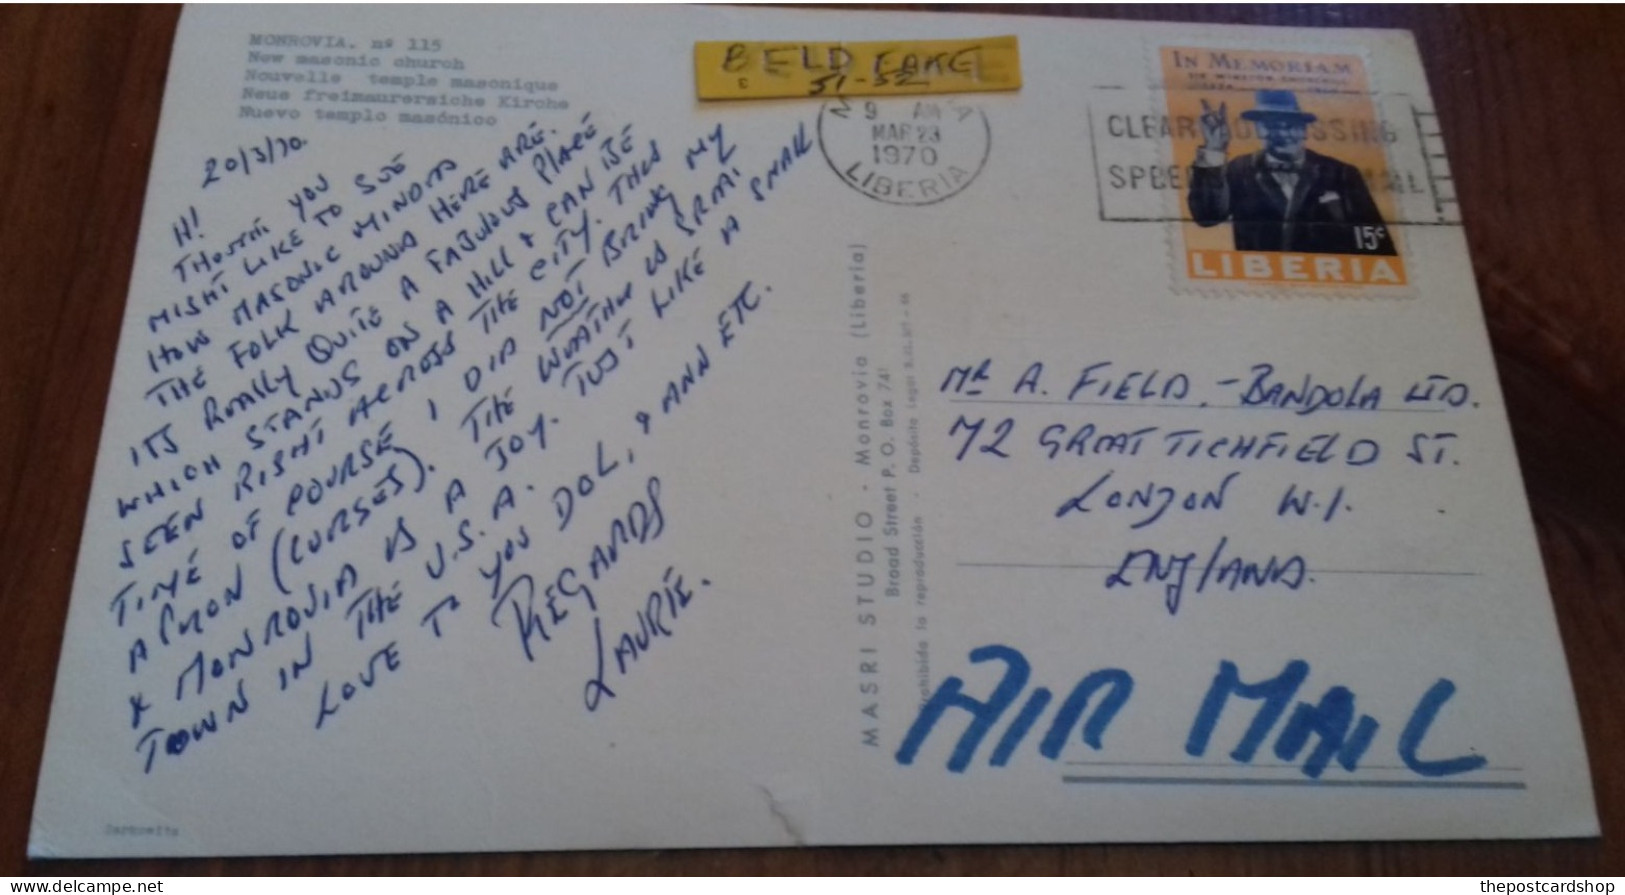 MONROVIA. nº 115
New masonic church
Nouvelle temple masonique
Neue freimaurersiche Kirche
Nuevo templo masónico
20/3/70.
HI
THOUGHT YOU
MIGHT LIKE TO SEE
HOW MASONIC MINDED
THE FOLK AROUND HERE ARE.
ITS REALLY QUITE A FABULOUS PLACE
WHICH STANDS ON A HILL & CAN BE
SEEN RIGHT ACROSS THE CITY. THIS
TIME OF COURSE I DID NOT BRING MY
APRON (CURSES). THE WEATHER IS GREAT
& MONROVIA IS A JOY. JUST LIKE A SMALL
TOWN IN THE U.S.A.
LOVE TO YOU DOL, & ANN ETC.
REGARDS
LAURIE.
Zerkowitz
MASRI STUDIO - Monrovia (Liberia)
Broad Street P. O. Box 741
Prohibida la reproducción - Depósito Legal
FAKE
51-52
9 AM
MAR 23
1970
LIBERIA
CLEAR CROSSING
IN MEMORIAM
SIR WINSTON CHURCHILL
15c
LIBERIA
MR A. FIELD. - BANDOLA LTD.
72 GREAT TICHFIELD ST.
LONDON W.1.
ENGLAND.
AIR MAIL
www.delcampe.net
thepostcardshop